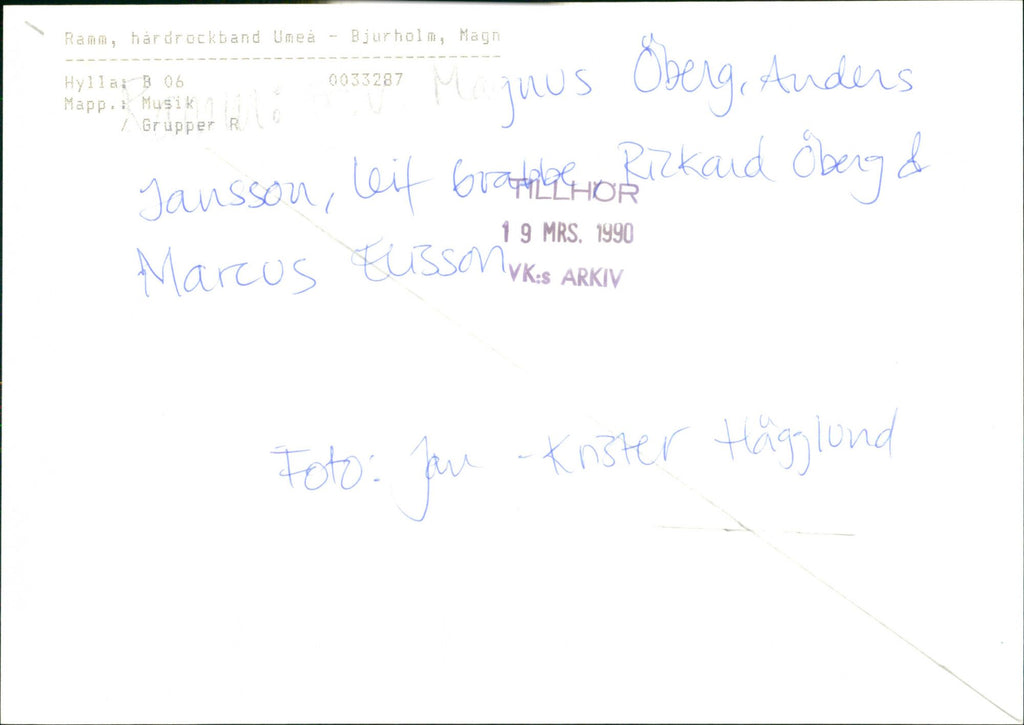 Ramm, hårdrockband Umeå - Bjurholm, Magn
Hylla: B 06 0033287
Mapp.: Musik
/ Grupper R
Ramm: Magnus Öberg, Anders
Jansson, Leif Grabbe, Rickard Öberg &
Marcus Elisson
TILLHÖR
19 MRS. 1990
VK:s ARKIV
Foto: Jan-Krister Hägglund